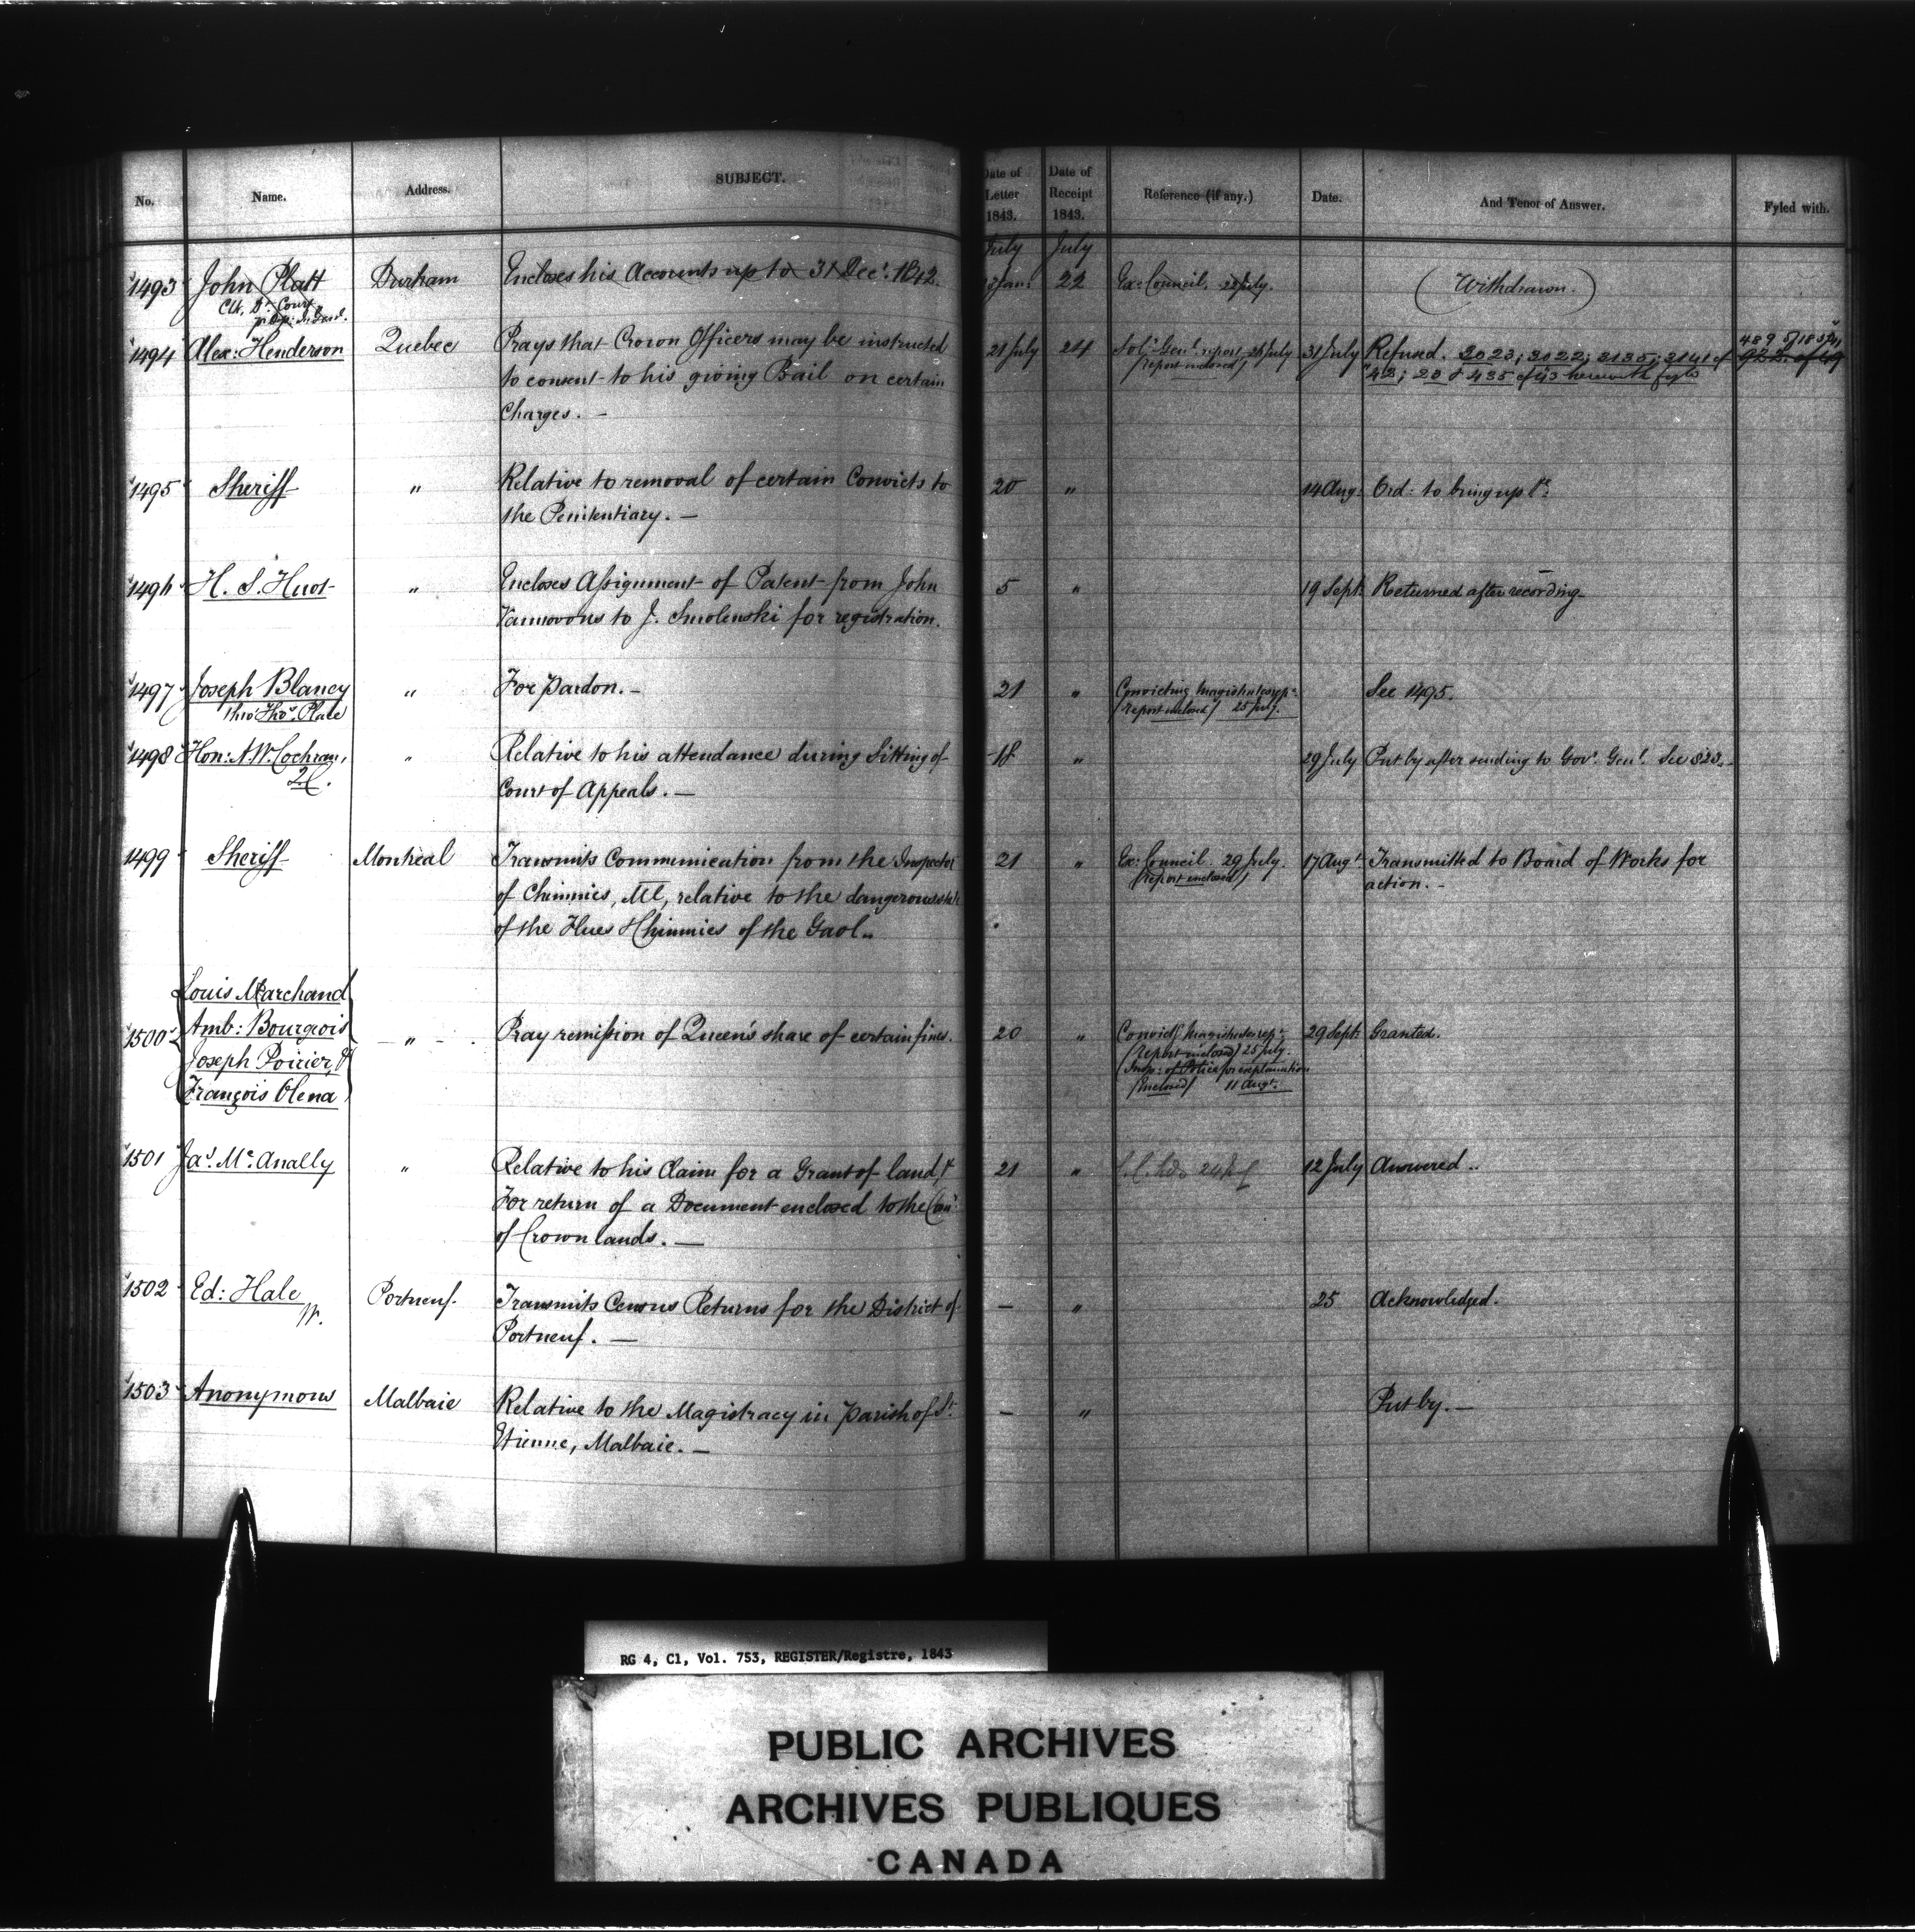 No. Name. Address. SUBJECT. Date of Letter 1843. Date of Receipt 1843. Reference (if any.) Date. And Tenor of Answer. Fyled with.
July July
1493 John Platt Durham Encloses his Accounts up to 31 Decr. 1842. Jany. 22 Ex: Council. July. (Withdrawn.)
Clk. Dt. Court
1494 Alex: Henderson Quebec Prays that Crown Officers may be instructed 21 July 24 Solr. Genl. report 31 July Refused. 2023; 3022; 3135; 3141 of
to consent to his giving Bail on certain (report enclosed) 42; 20 & 435 of 43 herewith fyled
Charges. —
1495 Sheriff " Relative to removal of certain Convicts to 20 " 14 Aug: Ord: to bring up
the Penitentiary. —
1496 H. S. " Encloses Assignment of Patent from John 5 " 19 Sept: Returned after recording
to J. Smolenski for registration.
1497 Joseph Blaney " For Pardon. — 21 " Convicting Magistrates rept. See 1495.
thro' Thos. Place (report enclosed) 25 July.
1498 Hon: A. W. Cochran, " Relative to his attendance during Sitting of 18 " 29 July Put by after sending to Govr. Genl. See 823.
Q.C. Court of Appeals. —
1499 Sheriff Montreal Transmits Communication from the Inspector 21 " Ex: Council. 29 July. 17 Augt. Transmitted to Board of Works for
of Chimnies, Ml, relative to the dangerous (report enclosed) action. -
of the Flues & Chimnies of the Gaol
Louis Marchand
1500 Amb: Bourgeois " Pray remission of Queen's share of certain fines. 20 " Convictg Magistrates rept. 29 Sept: Granted.
Joseph Poirier, & (report enclosed) 25 July.
François Olena Insp: of Police for explanation
(enclosed) 11 Augt.
1501 Jas. Mc. Anally " Relative to his Claim for a Grant of land, & 21 " 12 July Answered
For return of a Document enclosed to the Com
of Crown lands. —
1502 Ed: Hale Portneuf. Transmits Census Returns for the District of — " 25 Acknowledged.
Portneuf. —
1503 Anonymous Malbaie Relative to the Magistracy in Parish of St. — " Put by. —
Etienne, Malbaie. —
RG 4, C1, Vol. 753, REGISTER/Registre, 1843
PUBLIC ARCHIVES
ARCHIVES PUBLIQUES
CANADA